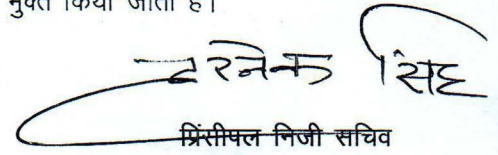 मुक्त किया जाता है।
हरनेक सिंह
प्रिंसीपल निजी सचिव